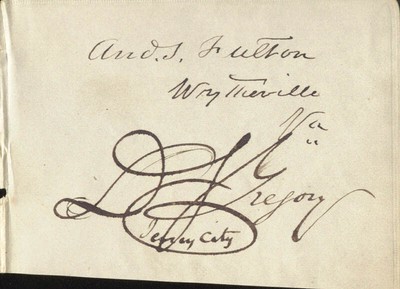 And. S. Fulton
Wytheville
Va
D S Gregory
Jersey City